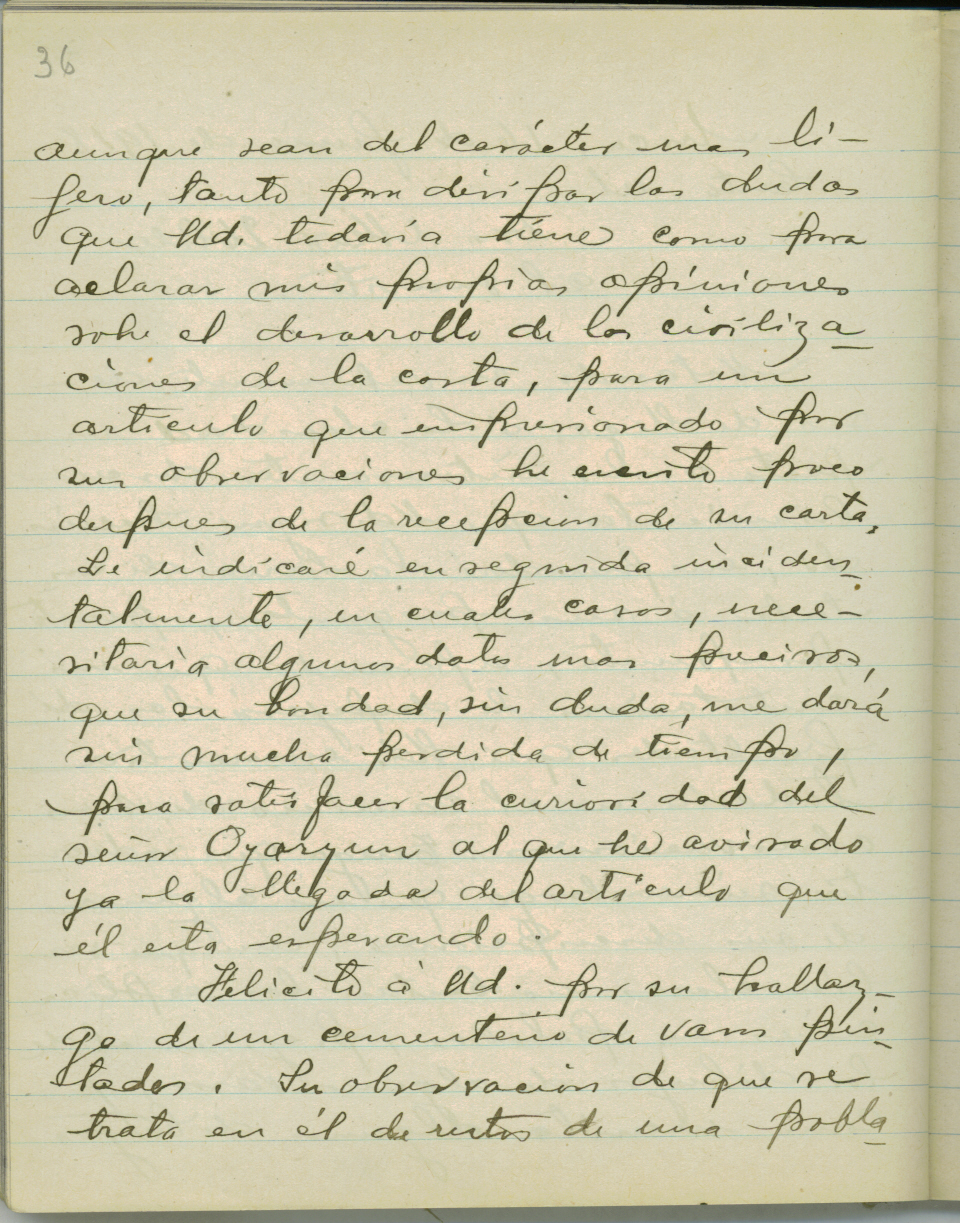 36
aunque sean del carácter mas li-
gero, tanto para disipar las dudas
que Ud. todavia tiene como para
aclarar mis propias opiniones
sobe el desarrollo de las civiliza-
ciones de la costa, para un
articulo que impresionado por
sus observaciones he escrito poco
despues de la recepcion de su carta.
Le indicaré enseguida inciden-
talmente, en cuales casos, nece-
sitaria algunos datos mas precisos,
que su bondad, sin duda, me dará
sin mucha perdida de tiempo,
para satisfacer la curiosidad del
señor Oyarzun al que he avisado
ya la llegada del articulo que
él esta esperando.
Felicito á Ud. por su hallaz-
go de un cementerio de vasos pin-
tados. Su observacion de que se
trata en él de restos de una pobla-